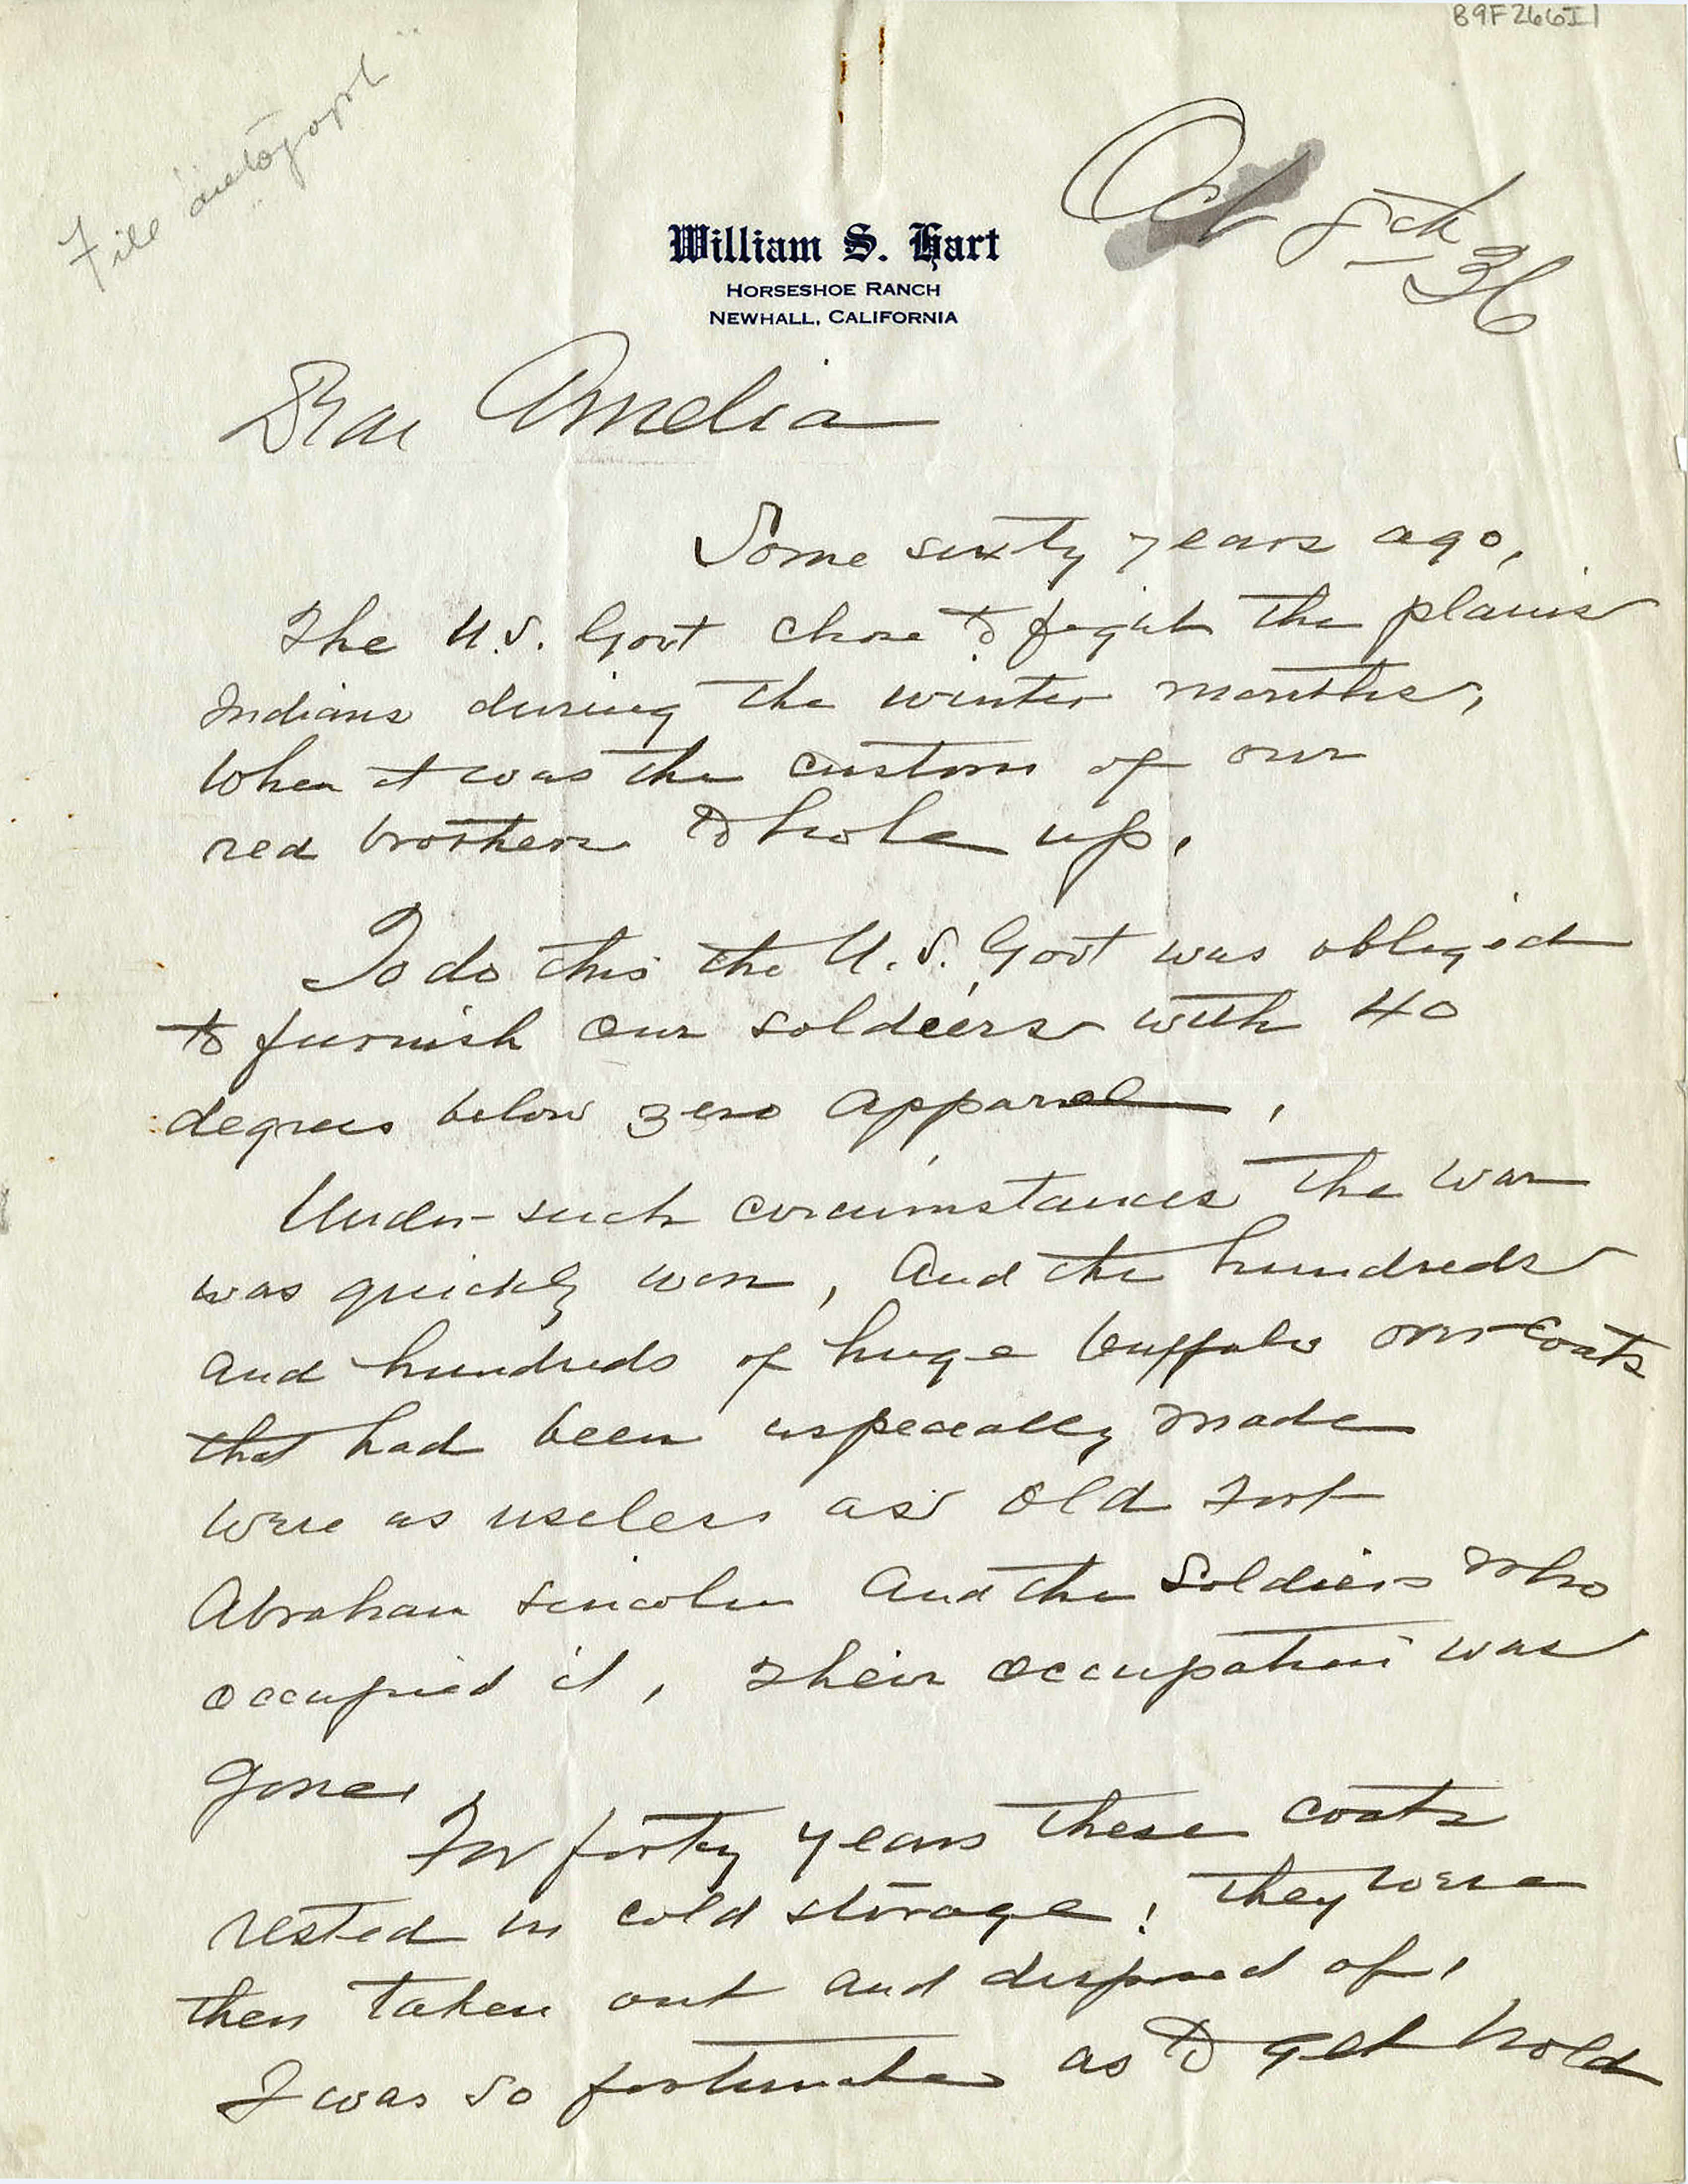 B9F266I1
File "autograph"
Oct 8th
36
William S. Hart
HORSESHOE RANCH
NEWHALL, CALIFORNIA
Dear Amelia
Some sixty years ago,
The U.S. Govt chose to fight the plains
Indians during the winter months,
When it was the custom of our
red brothers to hole up.
To do this the U.S. Govt was obliged
to furnish our soldiers with 40
degrees below zero apparel.
Under such circumstances the war
was quickly won, and the hundreds
and hundreds of huge buffalo overcoats
that had been especially made
were as useless as old Fort
Abraham Lincoln and the soldiers who
occupied it, their occupation was
gone.
For forty years these coats
rested in cold storage; they were
then taken out and disposed of.
I was so fortunate as to get hold